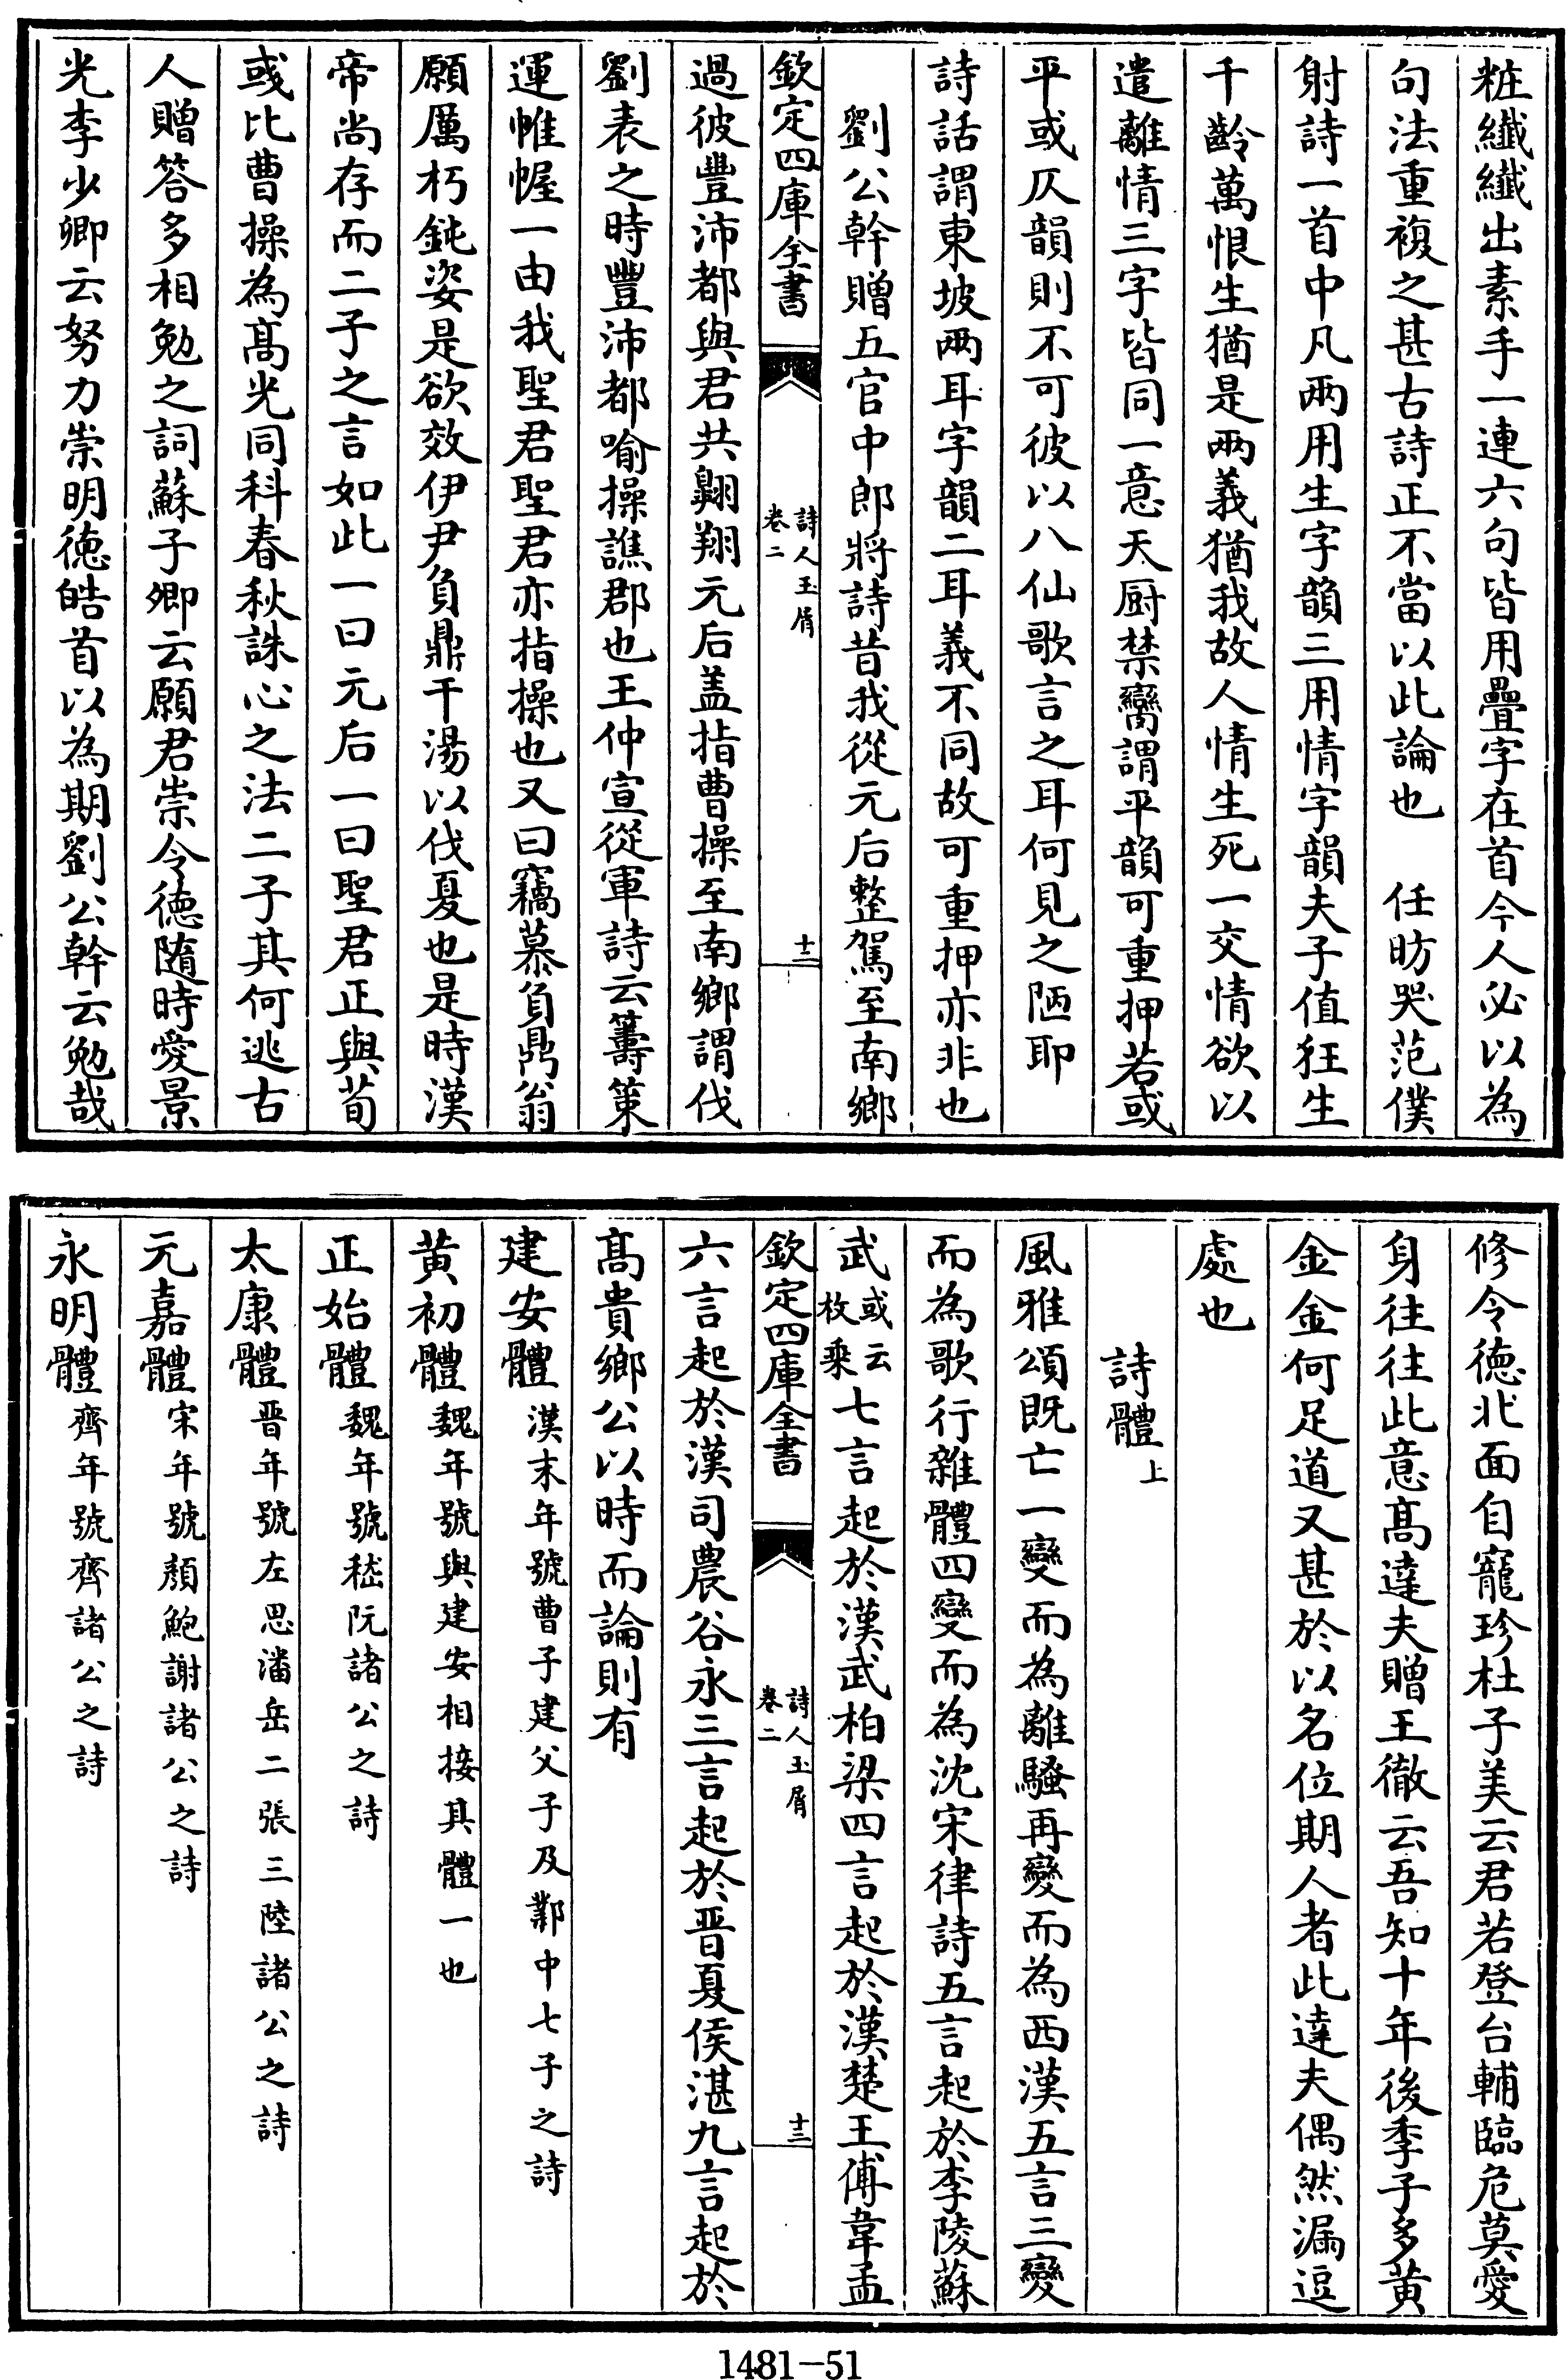 粧纖纖出素手一連六句皆用疊字在首今人必以為
句法重複之甚古詩正不當以此論也　任昉哭范僕
射詩一首中凡兩用生字韻三用情字韻夫子值狂生
千齡萬恨生猶是兩義猶我故人情生死一交情欲以
遣離情三字皆同一意天厨禁臠謂平韻可重押若或
平或仄韻則不可彼以八仙歌言之耳何見之陋耶
詩話謂東坡兩耳字韻二耳義不同故可重押亦非也
劉公幹贈五官中郎將詩昔我從元后整駕至南鄉
欽定四庫全書　詩人玉屑　卷二　十二
過彼豐沛都與君共翺翔元后盖指曹操至南鄉謂伐
劉表之時豐沛都喻操譙郡也王仲宣從軍詩云籌策
運帷幄一由我聖君聖君亦指操也又曰竊慕負鼎翁
願厲朽鈍姿是欲效伊尹負鼎干湯以伐夏也是時漢
帝尚存而二子之言如此一曰元后一曰聖君正與荀
彧比曹操為髙光同科春秋誅心之法二子其何逃古
人贈答多相勉之詞蘇子卿云願君崇令徳隨時愛景
光李少卿云努力崇明徳皓首以為期劉公幹云勉哉
修令徳北面自寵珍杜子美云君若登台輔臨危莫愛
身往往此意髙達夫贈王徹云吾知十年後季子多黄
金金何足道又甚於以名位期人者此達夫偶然漏逗
處也
詩體上
風雅頌既亡一變而為離騷再變而為西漢五言三變
而為歌行雜體四變而為沈宋律詩五言起於李陵蘇
武或云枚乘七言起於漢武柏梁四言起於漢楚王傅韋孟
欽定四庫全書　詩人玉屑　卷二　十三
六言起於漢司農谷永三言起於晋夏侯湛九言起於
髙貴鄉公以時而論則有
建安體漢末年號曹子建父子及鄴中七子之詩
黄初體魏年號與建安相接其體一也
正始體魏年號嵇阮諸公之詩
太康體晋年號左思潘岳二張三陸諸公之詩
元嘉體宋年號顏鮑謝諸公之詩
永明體齊年號齊諸公之詩
1481—51